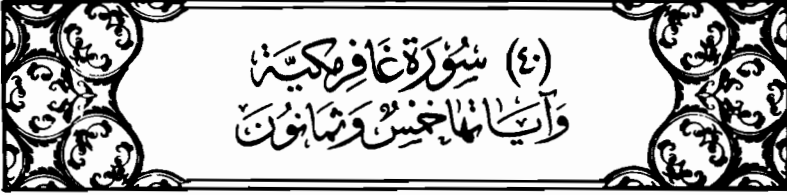 (٤٠) سُوْرَةِ غَافِرْ مَكِيَّة
وَآيَاتهَا خَمْسٌ وَثَمَانُونَ